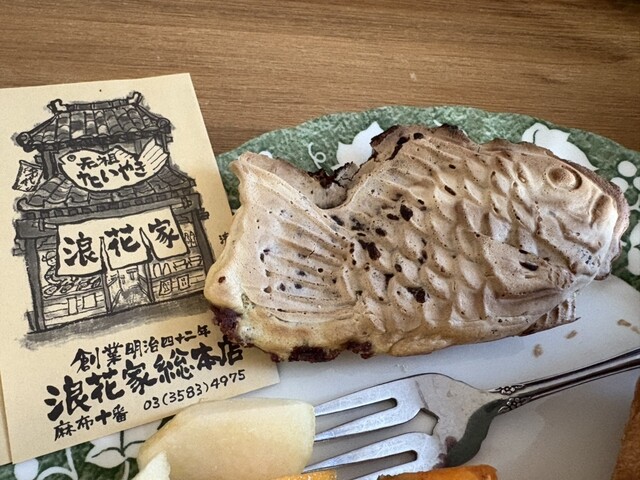 元祖
たいやき
浪花家
創業明治四十二年
浪花家総本店
麻布十番 03(3583)4975